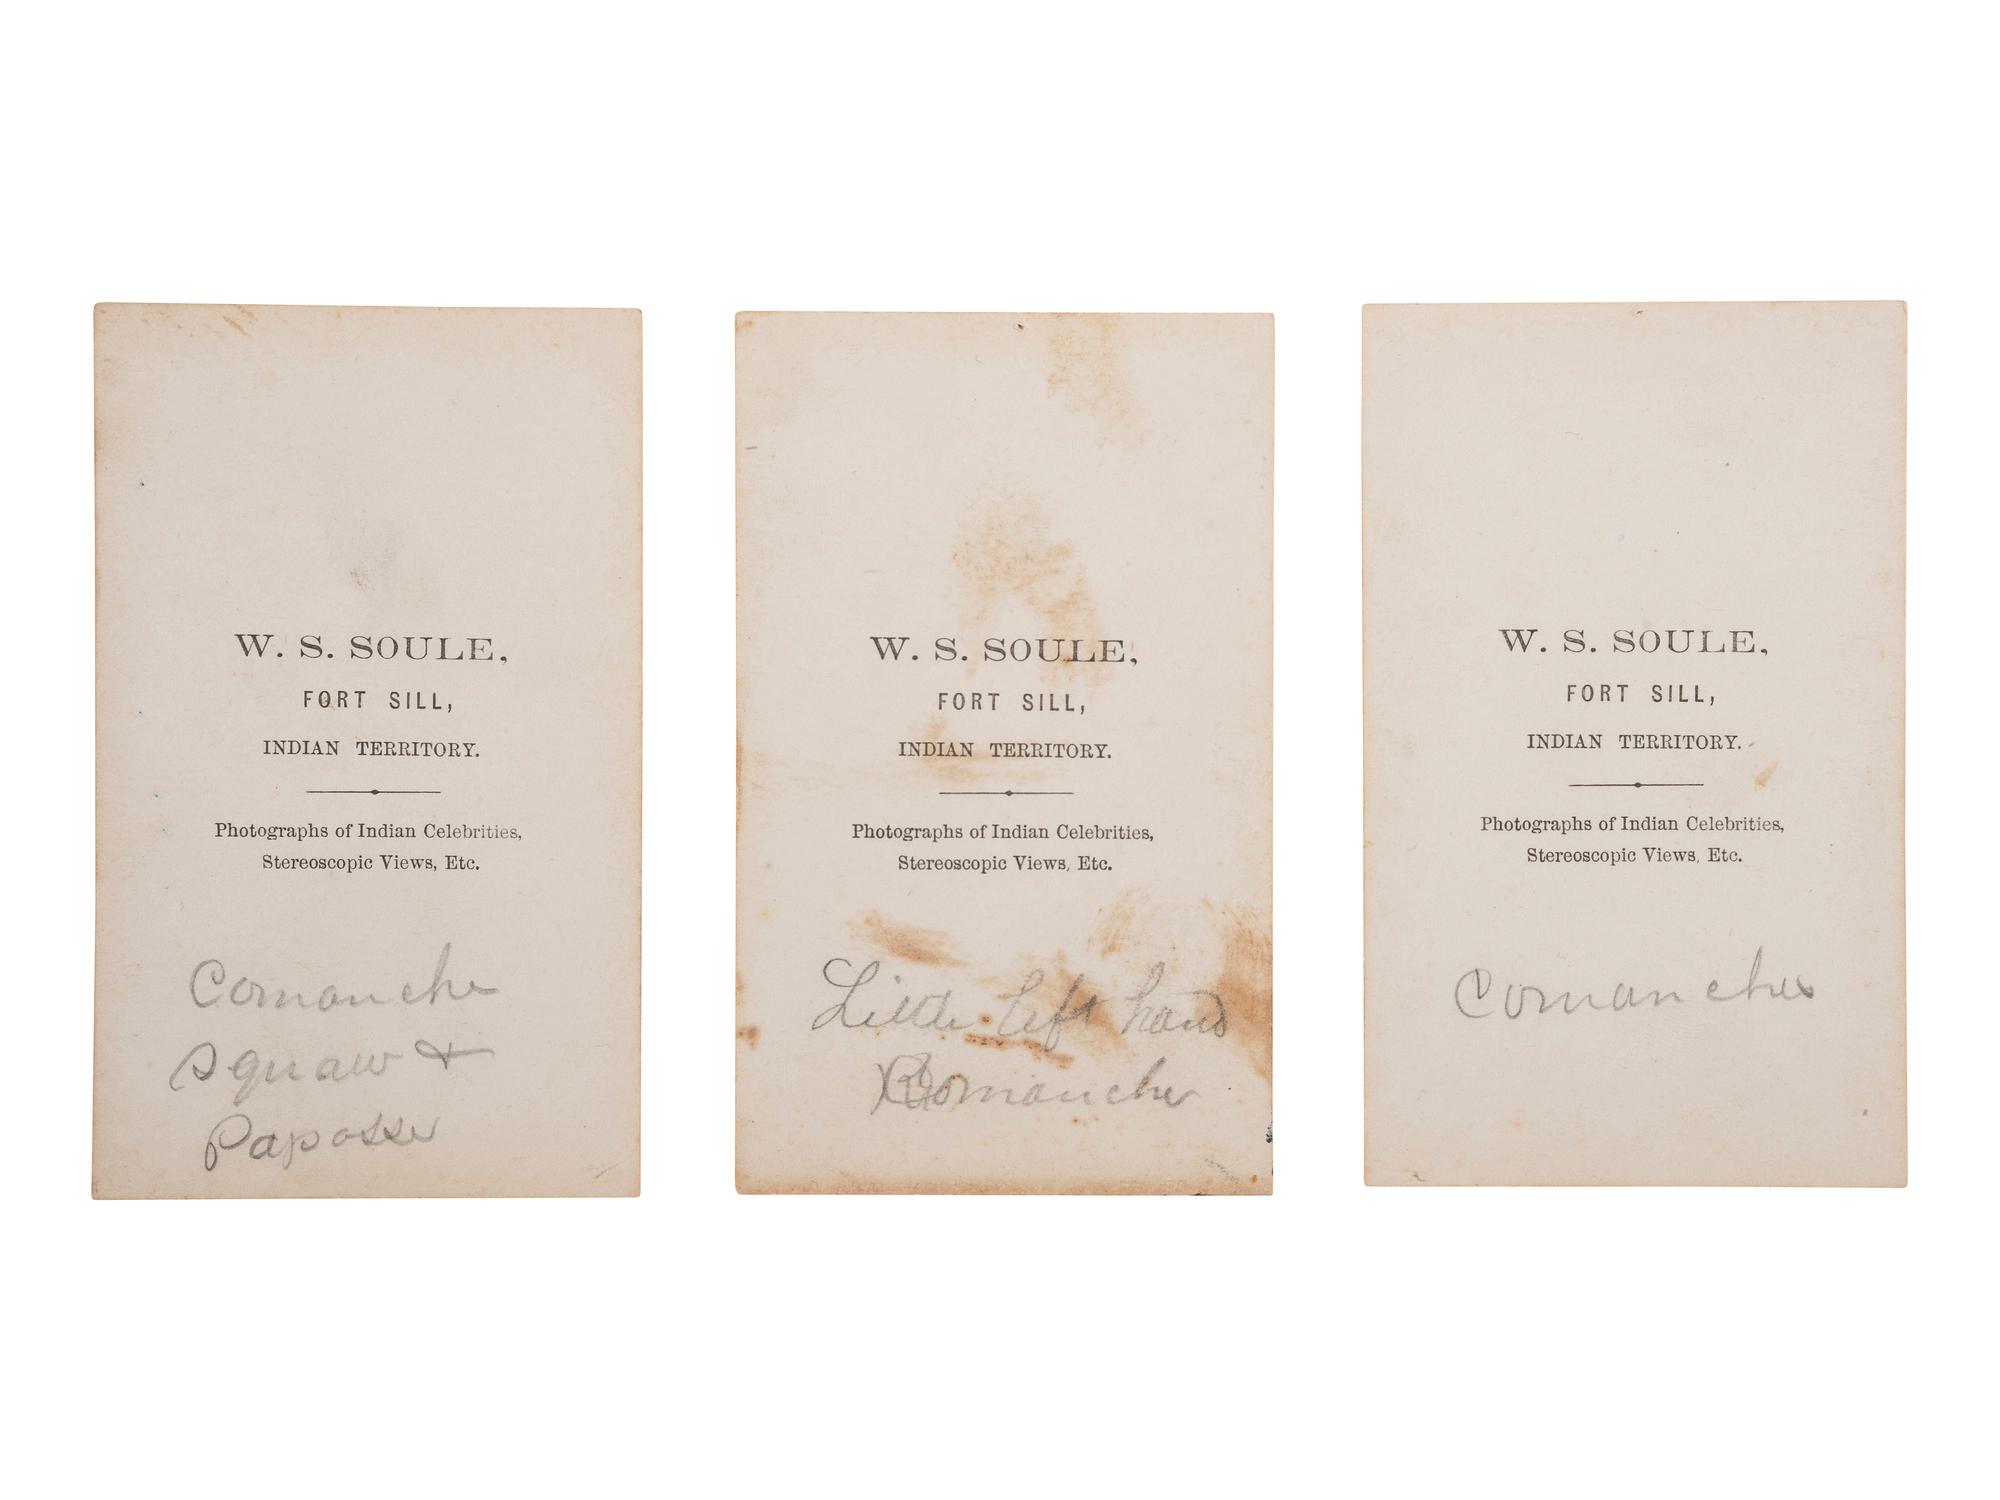 W. S. SOULE,
FORT SILL,
INDIAN TERRITORY.
Photographs of Indian Celebrities,
Stereoscopic Views, Etc.
Comanche
Squaw +
Paposse
W. S. SOULE,
FORT SILL,
INDIAN TERRITORY.
Photographs of Indian Celebrities,
Stereoscopic Views, Etc.
Little left hand
Comanche
W. S. SOULE,
FORT SILL,
INDIAN TERRITORY.
Photographs of Indian Celebrities,
Stereoscopic Views, Etc.
Comanches